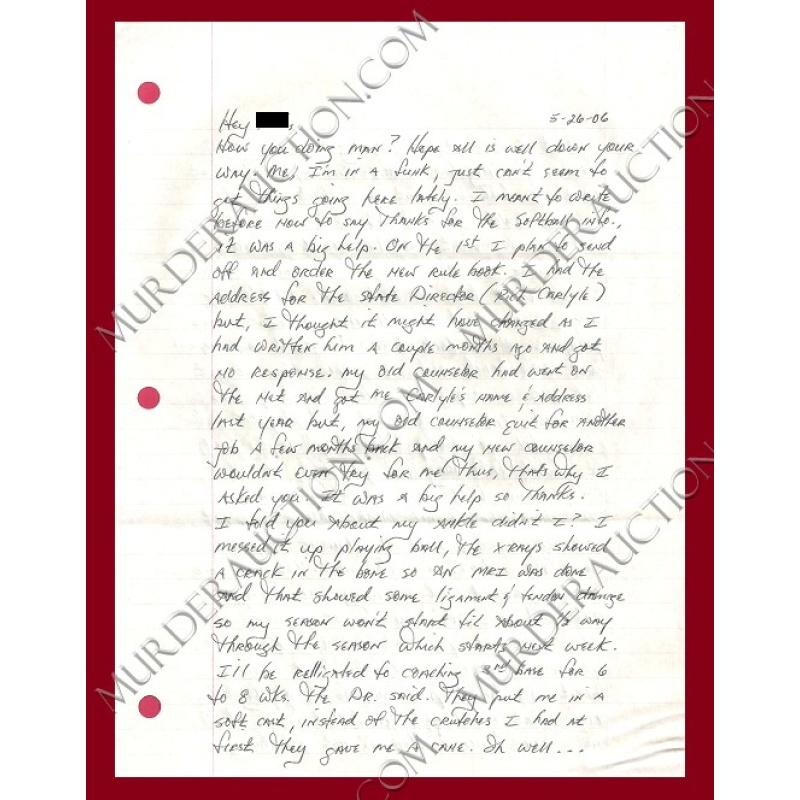 5-26-06
Hey
How you doing man? Hope all is well down your
way. Me, I'm in a funk, just can't seem to
get things going here lately. I meant to write
before now to say thanks for the softball info.,
it was a big help. On the 1st I plan to send
off and order the new rule book. I had the
address for the State Director (Rick Carlyle)
but, I thought it might have changed as I
had written him a couple months ago and got
no response. My old counselor had went on
the net and got me Carlyle's name & address
last year but, my old counselor quit for another
job a few months back and my new counselor
wouldnt even try for me thus, thats why I
asked you. It was a big help so thanks.
I told you about my ankle didn't I? I
messed it up playing ball, the xrays showed
a crack in the bone so an MRI was done
and that showed some ligament & tendon damage
so my season won't start til about ½ way
through the season which starts next week.
I'll be relligated to coaching base for 6
to 8 wks. the Dr. said. They put me in a
soft cast, instead of the crutches I had at
first they gave me a cane. Oh well...
MURDERAUCTION.COM